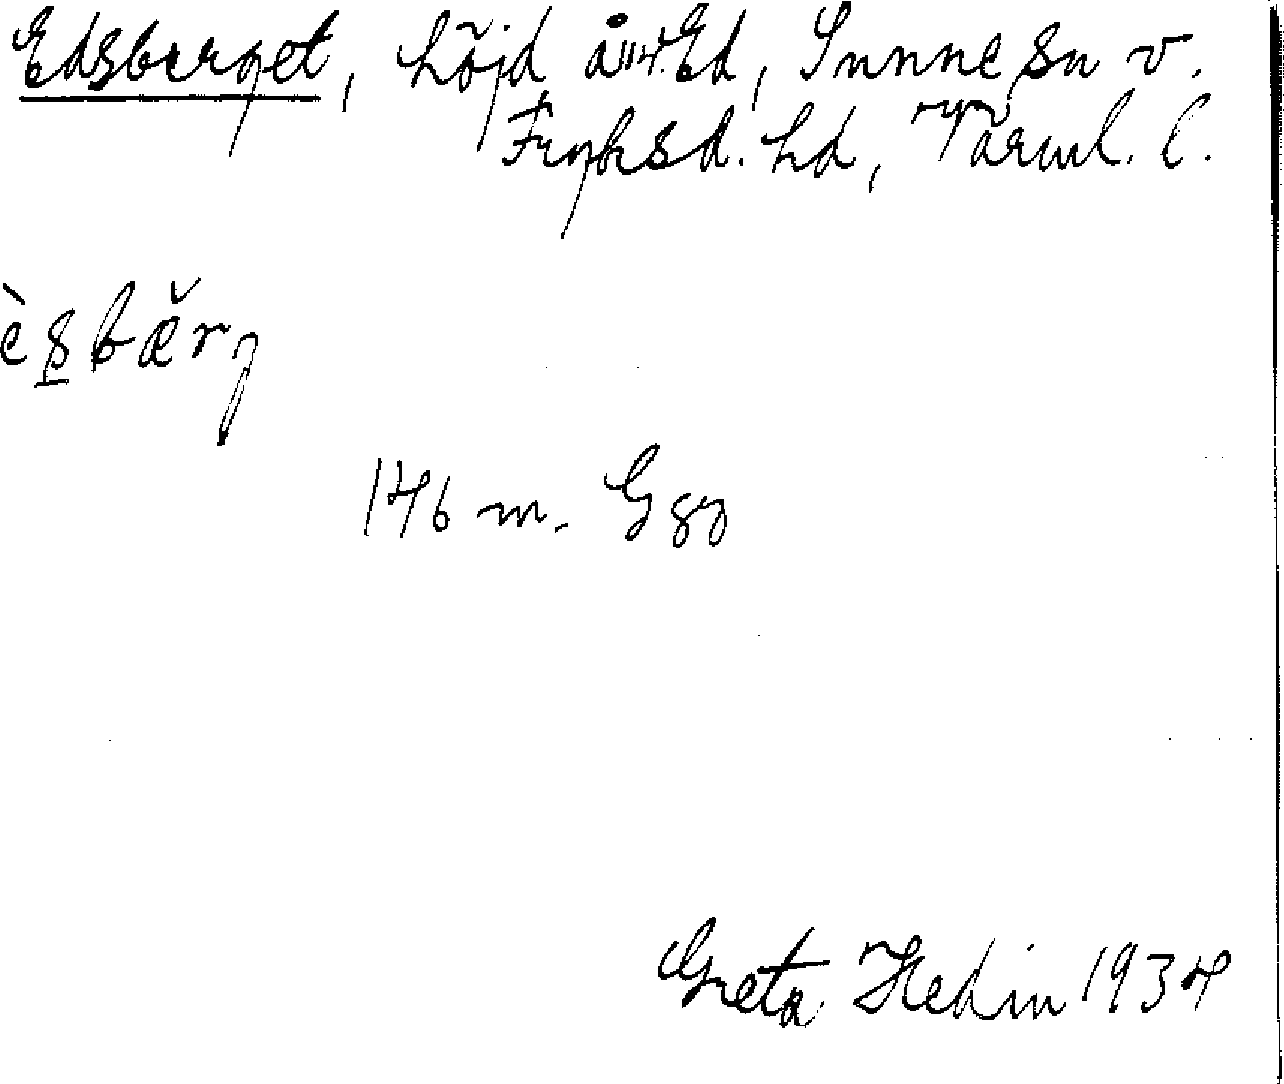 Edsberget, höjd å Ed, Sunne sn v.
Fryksd. hd, Värml. l.
èsbærg
146 m. G 83
Greta Hedin 1934